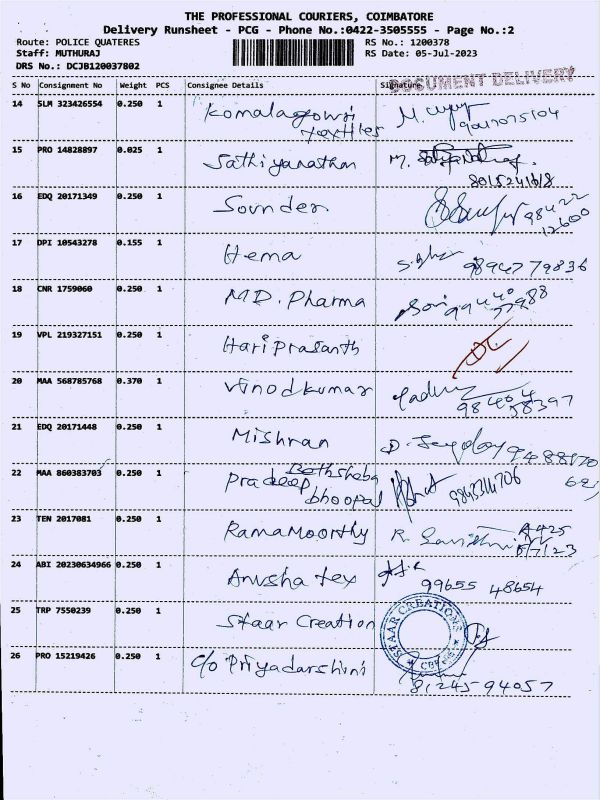 THE PROFESSIONAL COURIERS, COIMBATORE
Delivery Runsheet - PCG - Phone No.:0422-3505555 - Page No.:2
Route: POLICE QUATERES RS No.: 1200378
Staff: MUTHURAJ RS Date: 05-Jul-2023
DRS No.: DCJB120037802
DOCUMENT DELIVERY
S No Consignment No Weight PCS Consignee Details Signature
14 SLM 323426554 0.250 1 Komalagowri
textiles
15 PRO 14828897 0.025 1 Sathiyanathan M.
16 EDQ 20171349 0.250 1 Sounder 98422
12600
17 DPI 10543278 0.155 1 Hema 9894779836
18 CNR 1759060 0.250 1 M.D. Pharma 99440
77988
19 VPL 219327151 0.250 1 Hariprasanth
20 MAA 568785768 0.370 1 Vinodkumar
98404
58397
21 EDQ 20171448 0.250 1 Mishran
22 MAA 860383703 0.250 1 Pradeep Bethsheba
bhoopal 9843344706
23 TEN 2017081 0.250 1 RamaMoorthy R.
24 ABI 20230634966 0.250 1 Anusha tex
99655 48654
25 TRP 7550239 0.250 1 Staar Creation
STAAR CREATIONS
CBE
26 PRO 15219426 0.250 1 C/o Priyadarshini
81245-94057